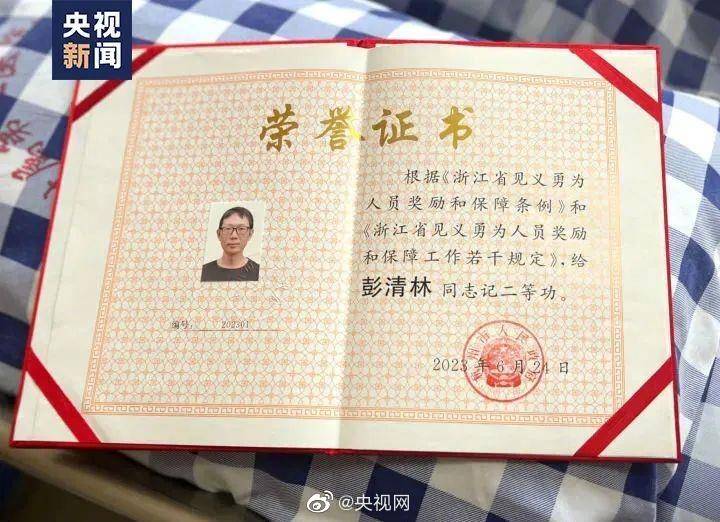 央视
新闻
荣誉证书
编号： 202301
根据《浙江省见义勇为
人员奖励和保障条例》和
《浙江省见义勇为人员奖励
和保障工作若干规定》，给
彭清林 同志记二等功。
2023 年 6 月 24 日
@央视网